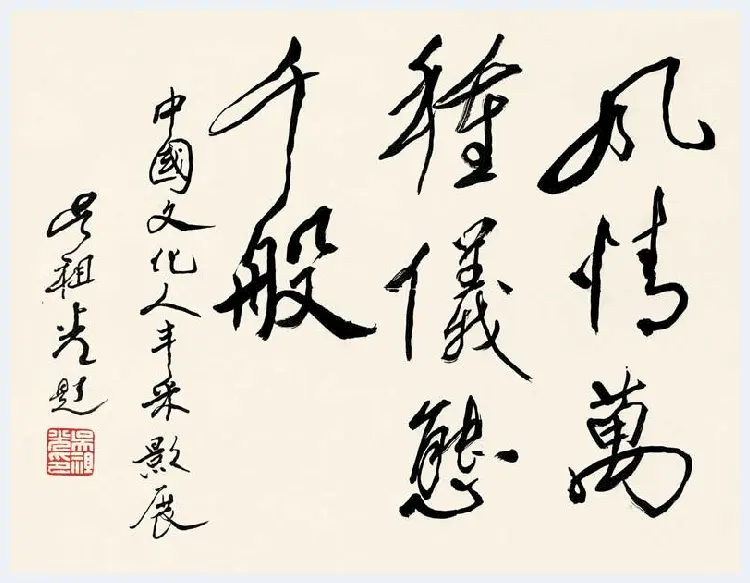 風情萬
種儀態
千般
中國文化人丰采影展
吳祖光題
吳祖光印